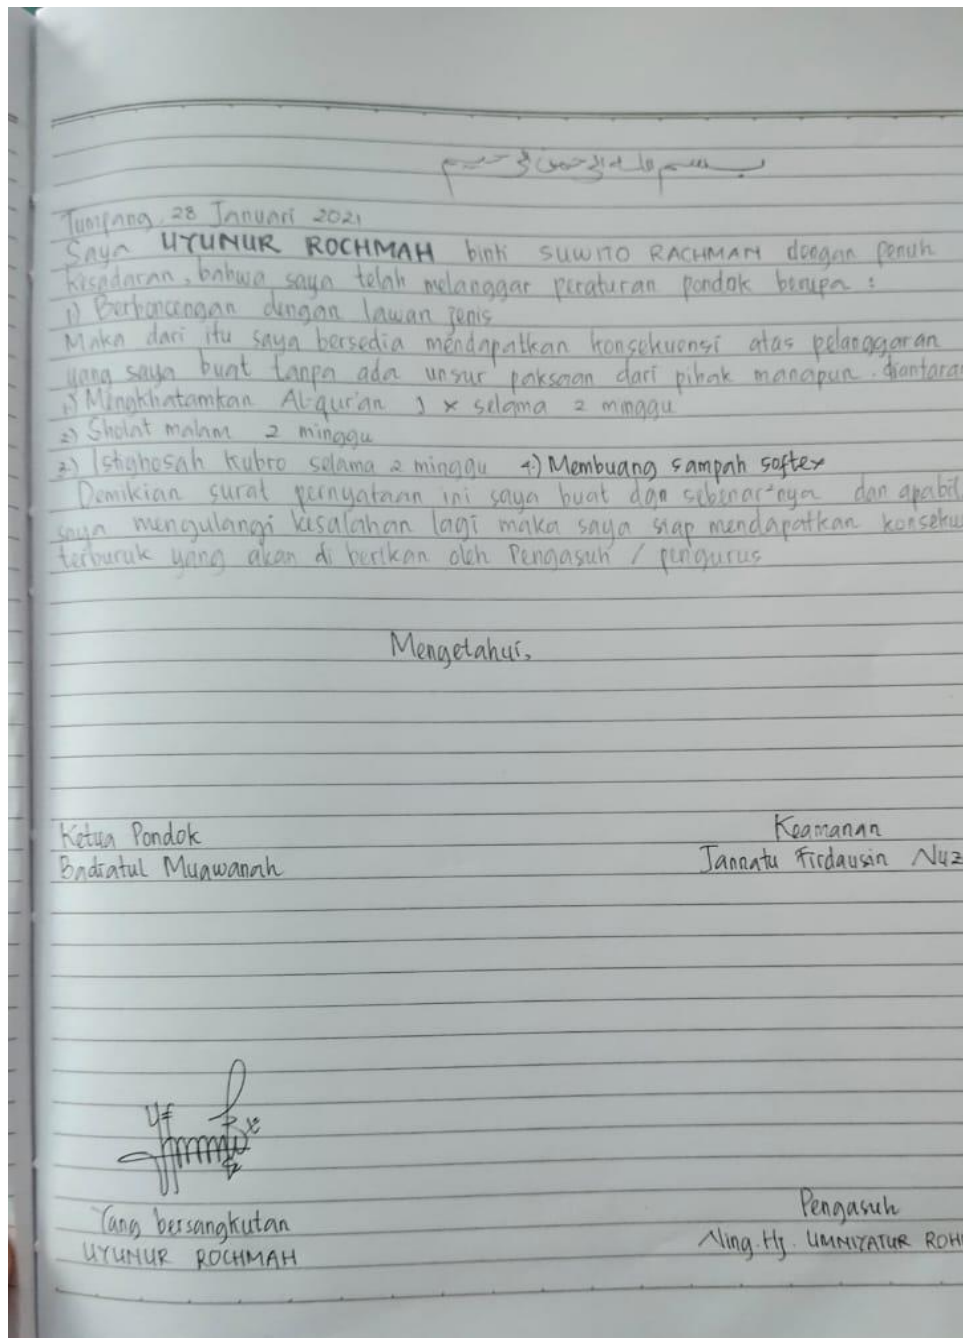 بسم الله الرحمن الرحيم
Tumpang, 28 Januari 2021
Saya UYUNUR ROCHMAH binti SUWITO RACHMAN dengan penuh
kesadaran, bahwa saya telah melanggar peraturan pondok berupa :
1) Berboncengan dengan lawan jenis
Maka dari itu saya bersedia mendapatkan konsekuensi atas pelanggaran
yang saya buat tanpa ada unsur paksaan dari pihak manapun. diantara
1.) Mengkhatamkan Al-qur'an 1 x selama 2 minggu
2) Sholat malam 2 minggu
3.) Istighosah kubro selama 2 minggu 4.) Membuang sampah softex
Demikian surat pernyataan ini saya buat dgn sebenar²nya dan apabil
saya mengulangi kesalahan lagi maka saya siap mendapatkan konseku
terburuk yang akan di berikan oleh Pengasuh / pengurus
Mengetahui,
Ketua Pondok
Keamanan
Badiatul Muawanah
Jannatu Firdausin Nuz
Yang bersangkutan
Pengasuh
UYUNUR ROCHMAH
Ning. Hj. UMNIYATUR ROH